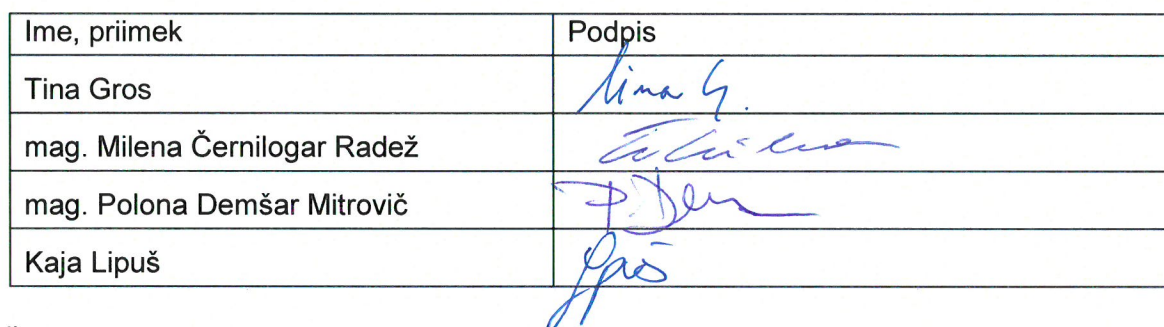 Ime, priimek Podpis
Tina Gros Tina G.
mag. Milena Černilogar Radež
mag. Polona Demšar Mitrovič P. Dem
Kaja Lipuš